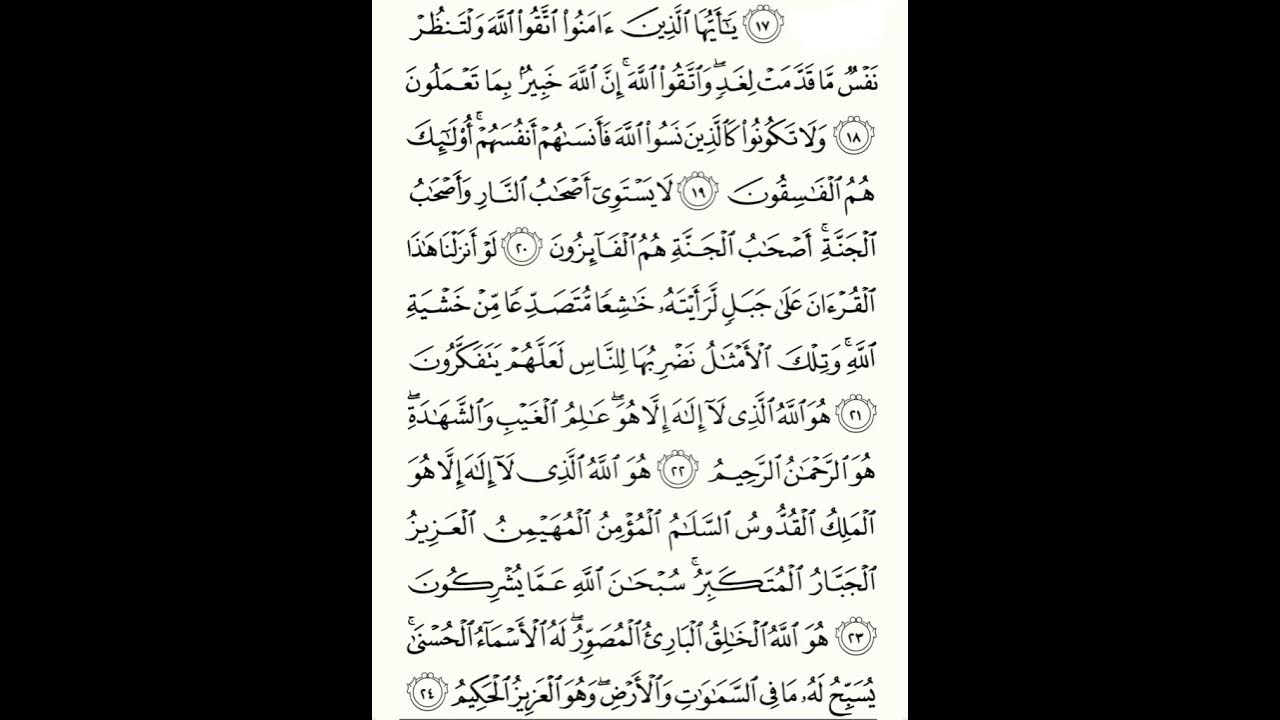 ١٧ يَـٰٓأَيُّهَا ٱلَّذِينَ ءَامَنُوا۟ ٱتَّقُوا۟ ٱللَّهَ وَلْتَنظُرْ
نَفْسٌ مَّا قَدَّمَتْ لِغَدٍ ۖ وَٱتَّقُوا۟ ٱللَّهَ ۚ إِنَّ ٱللَّهَ خَبِيرٌۢ بِمَا تَعْمَلُونَ
١٨ وَلَا تَكُونُوا۟ كَٱلَّذِينَ نَسُوا۟ ٱللَّهَ فَأَنسَىٰهُمْ أَنفُسَهُمْ ۚ أُو۟لَـٰٓئِكَ
هُمُ ٱلْفَـٰسِقُونَ ١٩ لَا يَسْتَوِىٓ أَصْحَـٰبُ ٱلنَّارِ وَأَصْحَـٰبُ
ٱلْجَنَّةِ ۚ أَصْحَـٰبُ ٱلْجَنَّةِ هُمُ ٱلْفَآئِزُونَ ٢٠ لَوْ أَنزَلْنَا هَـٰذَا
ٱلْقُرْءَانَ عَلَىٰ جَبَلٍ لَّرَأَيْتَهُۥ خَـٰشِعًا مُّتَصَدِّعًا مِّنْ خَشْيَةِ
ٱللَّهِ ۚ وَتِلْكَ ٱلْأَمْثَـٰلُ نَضْرِبُهَا لِلنَّاسِ لَعَلَّهُمْ يَتَفَكَّرُونَ
٢١ هُوَ ٱللَّهُ ٱلَّذِى لَآ إِلَـٰهَ إِلَّا هُوَ ۖ عَـٰلِمُ ٱلْغَيْبِ وَٱلشَّهَـٰدَةِ ۖ
هُوَ ٱلرَّحْمَـٰنُ ٱلرَّحِيمُ ٢٢ هُوَ ٱللَّهُ ٱلَّذِى لَآ إِلَـٰهَ إِلَّا هُوَ
ٱلْمَلِكُ ٱلْقُدُّوسُ ٱلسَّلَـٰمُ ٱلْمُؤْمِنُ ٱلْمُهَيْمِنُ ٱلْعَزِيزُ
ٱلْجَبَّارُ ٱلْمُتَكَبِّرُ ۚ سُبْحَـٰنَ ٱللَّهِ عَمَّا يُشْرِكُونَ
٢٣ هُوَ ٱللَّهُ ٱلْخَـٰلِقُ ٱلْبَارِئُ ٱلْمُصَوِّرُ ۖ لَهُ ٱلْأَسْمَآءُ ٱلْحُسْنَىٰ ۚ
يُسَبِّحُ لَهُۥ مَا فِى ٱلسَّمَـٰوَٰتِ وَٱلْأَرْضِ ۖ وَهُوَ ٱلْعَزِيزُ ٱلْحَكِيمُ ٢٤